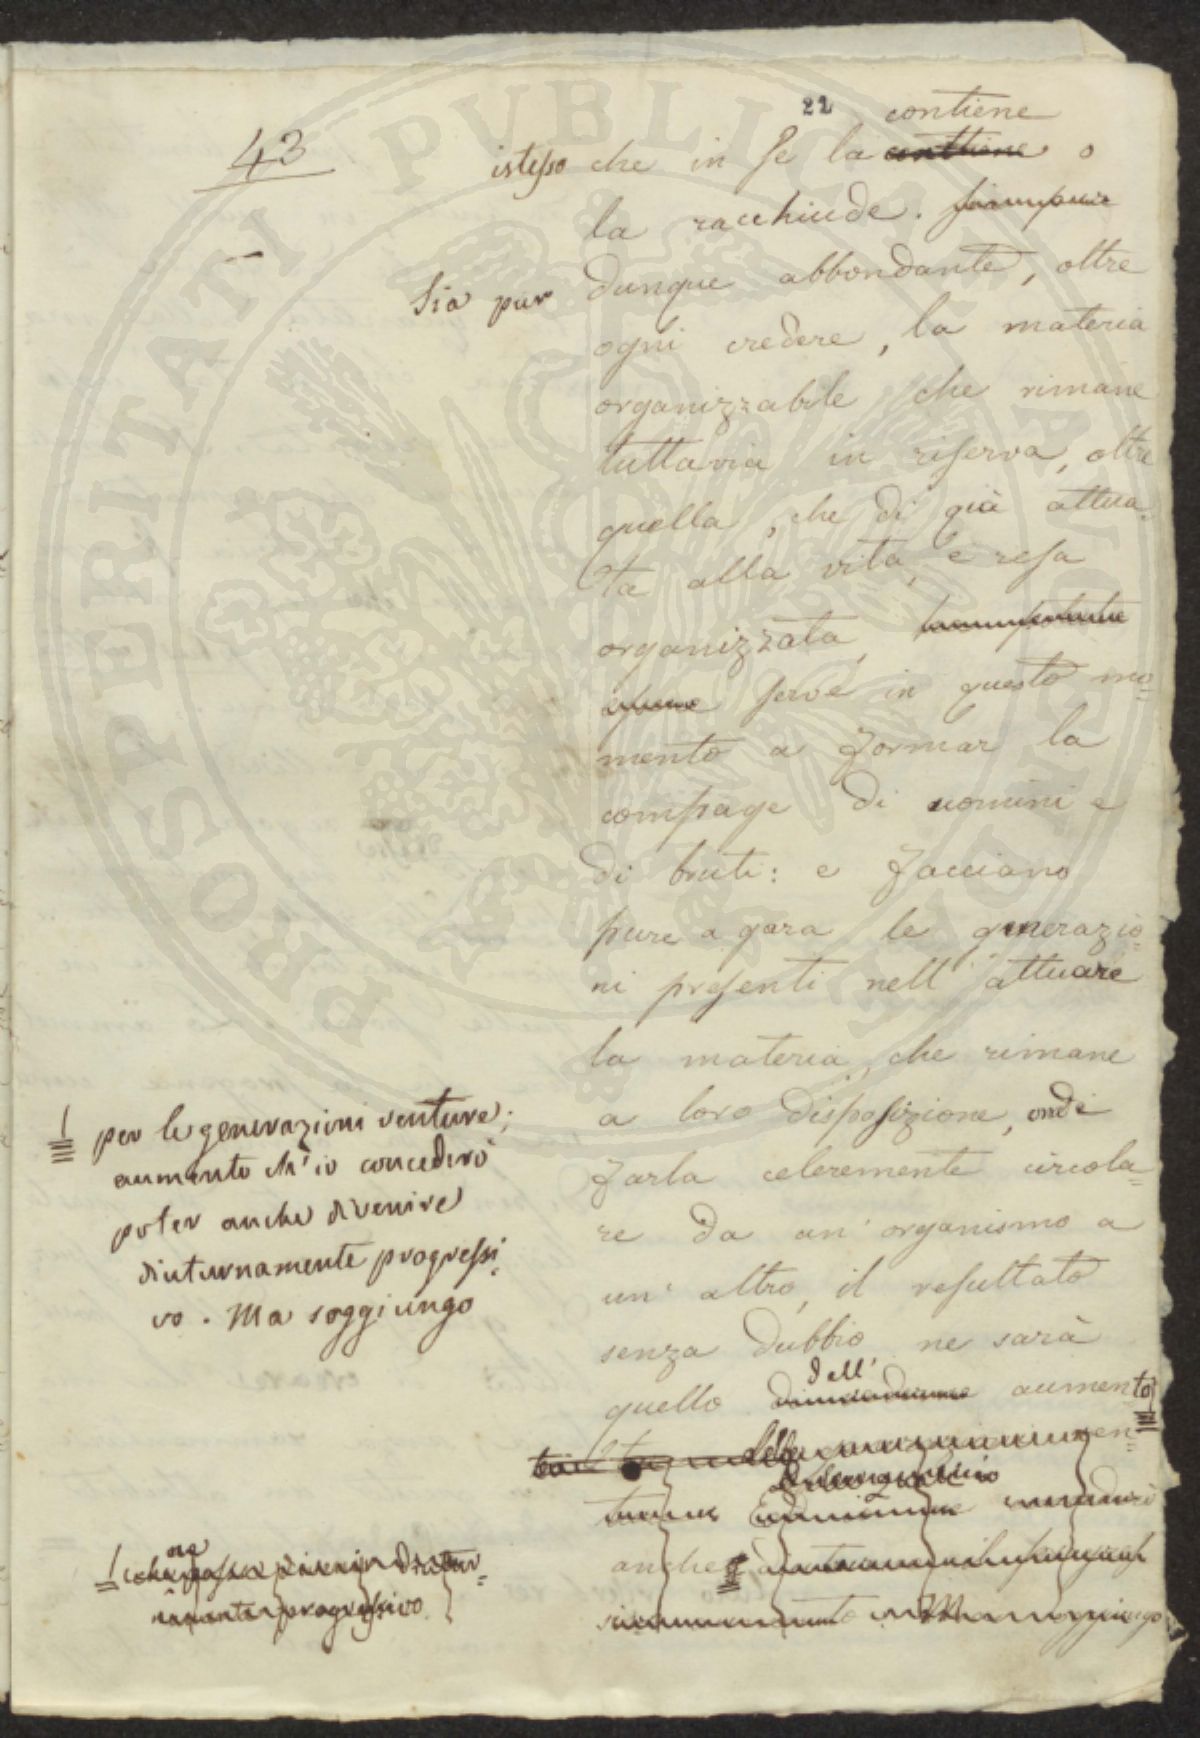 22
43
contiene
istesso che in se la o
la racchiude.
Sia pur dunque abbondante, oltre
ogni credere, la materia
organizzabile che rimane
tuttavia in riserva, oltre
quella, che di già attua-
ta alla vita, e resa
organizzata,
serve in questo mo=
mento a formar la
compage di uomini e
di bruti: e facciano
pure a gara le generazio=
ni presenti nell' attuare
la materia, che rimane
a loro disposizione, onde
farla celeremente circola=
re da un' organismo a
un' altro, il resultato
senza dubbio ne sarà
dell'
quello aumento
per le generazioni venture;
aumento ch' io concederò
poter anche divenire
diuturnamente progressi=
vo. Ma soggiungo
anche
progressivo
PROSPERITATI PUBLICAE AUGENDAE